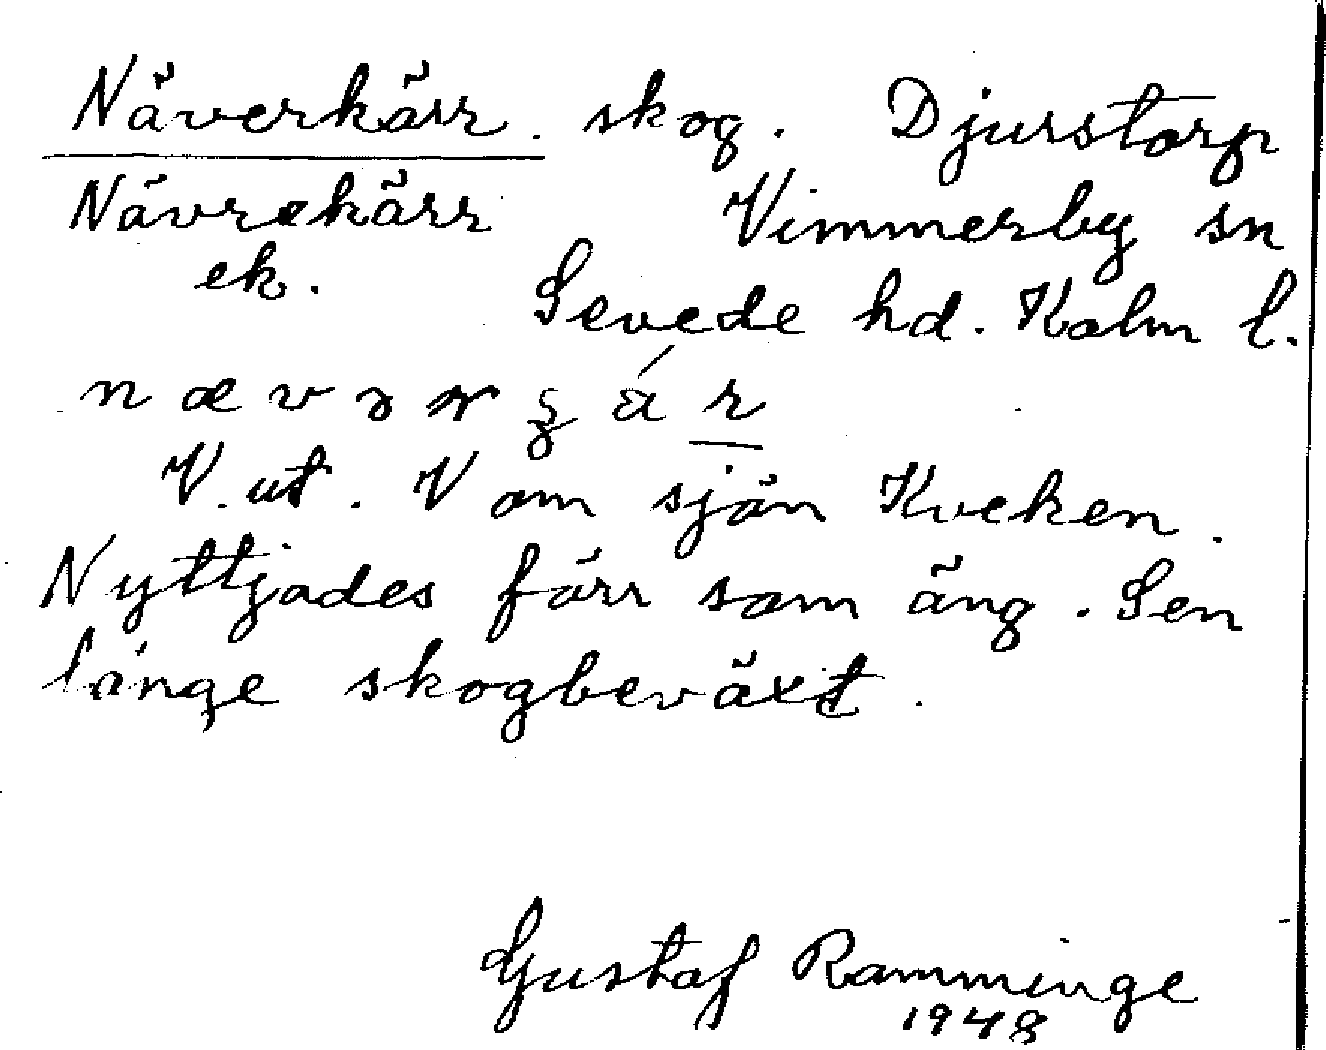 Näverkärr. skog. Djurstorp
Nävrekärr Vimmerby sn
ek. Sevede hd. Kalm l.
n æ v
V. ut. V om sjön Kveken.
Nyttjades förr som äng. Sen
länge skogbeväxt.
Gustaf Ramminge
1948